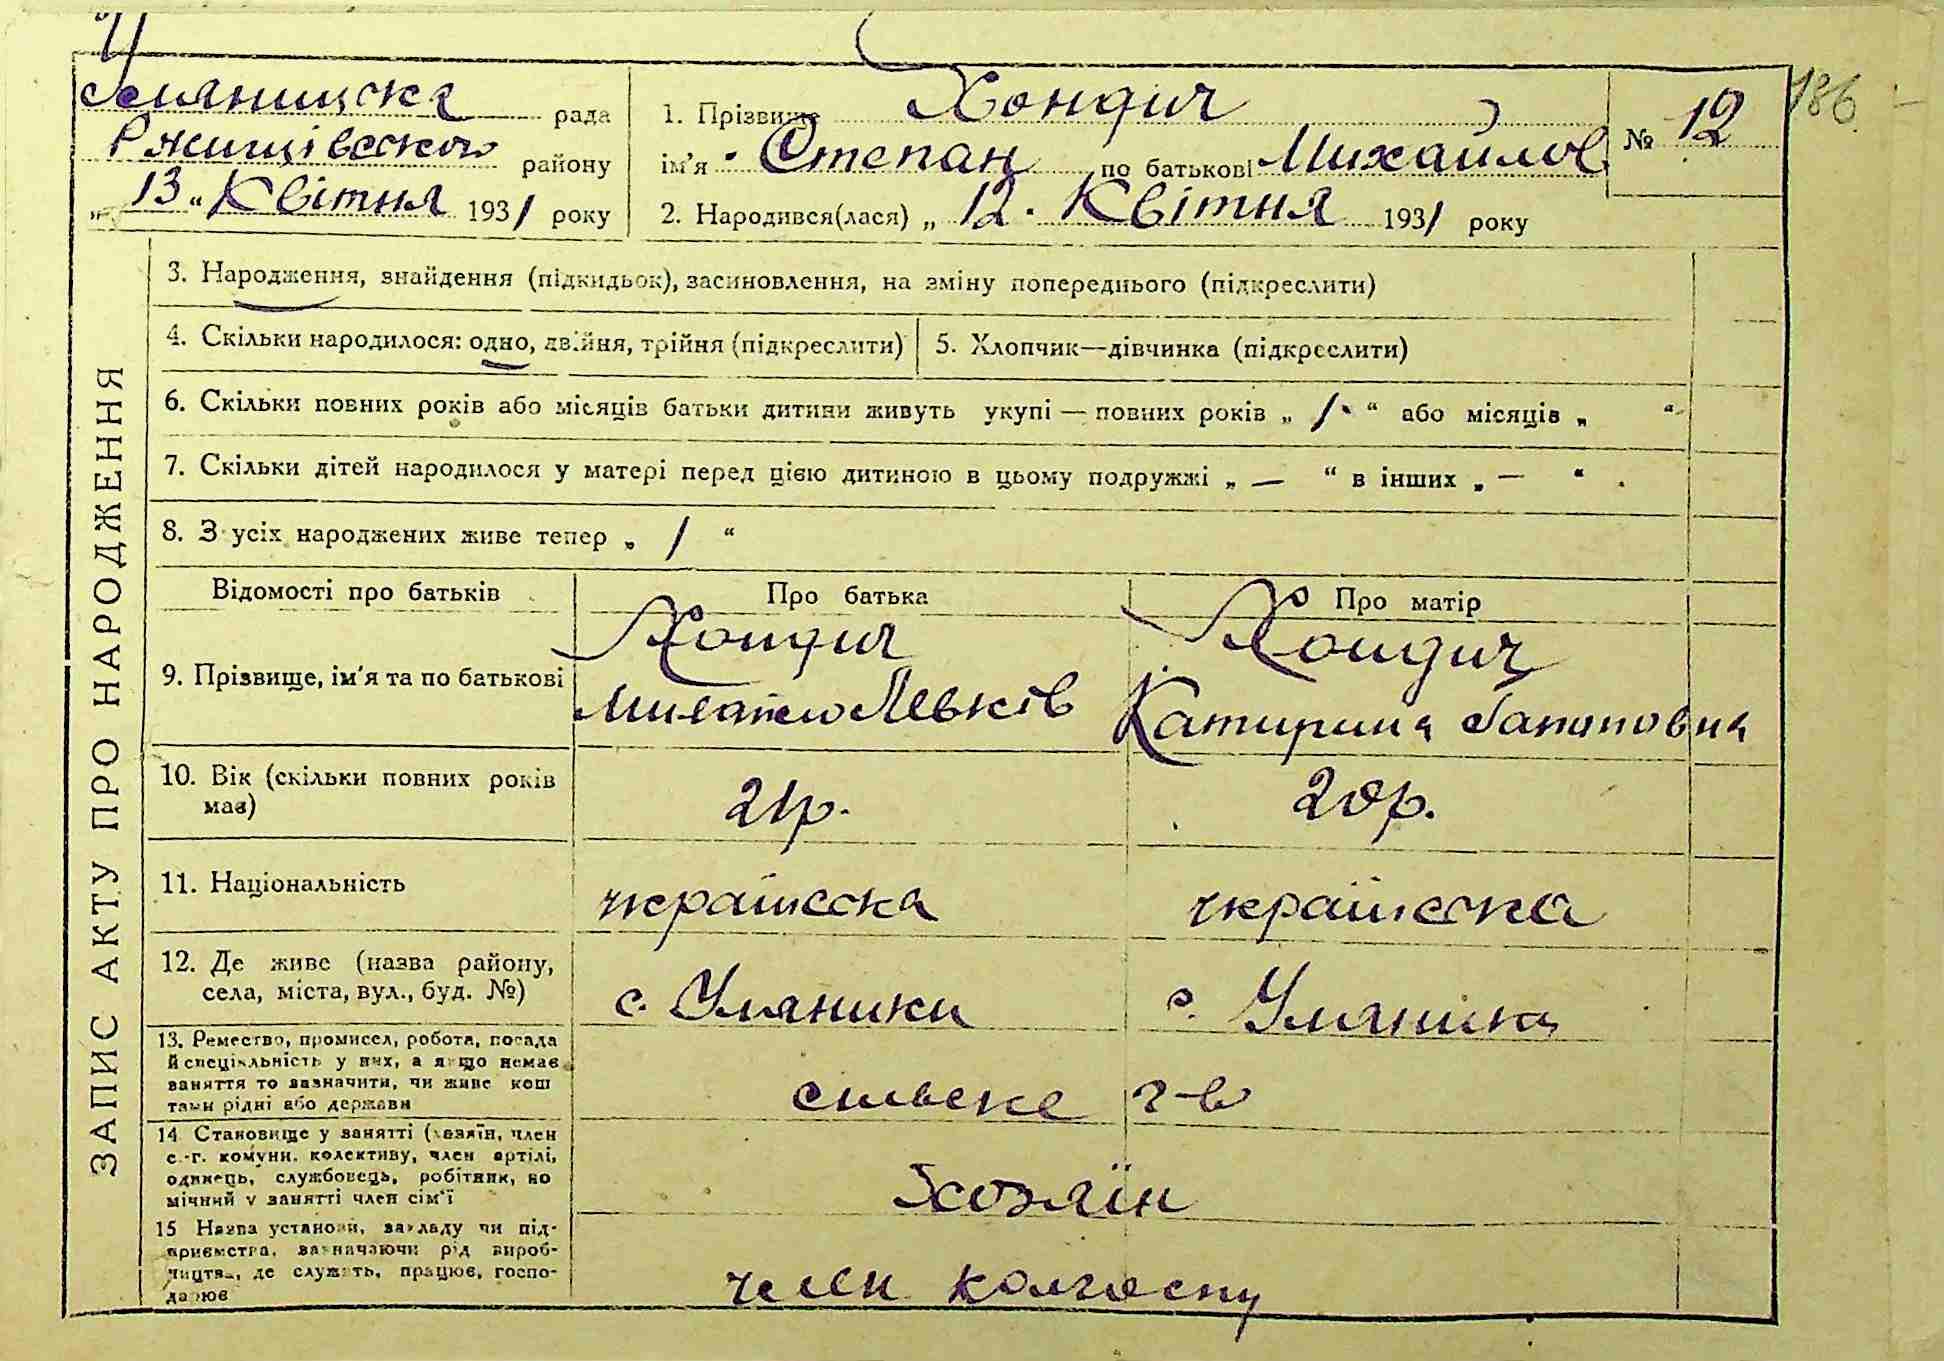 Уляницска рада
Ржищівського району
„ 13 " Квітня 1931 року
1. Прізвище Хондич
ім'я Степан по батькові Михайлов
2. Народився(лася) „ 12. Квітня 1931 року
№ 12
186
ЗАПИС АКТУ ПРО НАРОДЖЕННЯ
3. Народження, знайдення (підкидьок), засиновлення, на зміну попереднього (підкреслити)
4. Скільки народилося: одно, двійня, трійня (підкреслити)
5. Хлопчик—дівчинка (підкреслити)
6. Скільки повних років або місяців батьки дитини живуть укупі — повних років „ 1 " або місяців „ "
7. Скільки дітей народилося у матері перед цією дитиною в цьому подружжі „ — " в інших „ — " .
8. З усіх народжених живе тепер „ 1 "
Відомості про батьків Про батька Про матір
9. Прізвище, ім'я та по батькові
Хондич
Михайло Левків
Хондич
Катирина
10. Вік (скільки повних років
має)
21р.
20р.
11. Національність
українсска
українсска
12. Де живе (назва району,
села, міста, вул., буд. №)
с. Уляники
с. Уляники
13. Ремество, промисел, робота, посада
й спеціяльність у них, а якщо немає
заняття то зазначити, чи живе кош
тами рідні або держави
сільске г-в
14 Становище у занятті (хазяїн, член
с.-г. комуни, колективу, член артілі,
одинець, службовець, робітник, по
мічний у занятті член сім'ї
Хозяїн
15 Назва установи, закладу чи під-
приємства, зазначаючи рід вироб-
ництва, де служить, працює, госпо-
дарює
член колгоспу